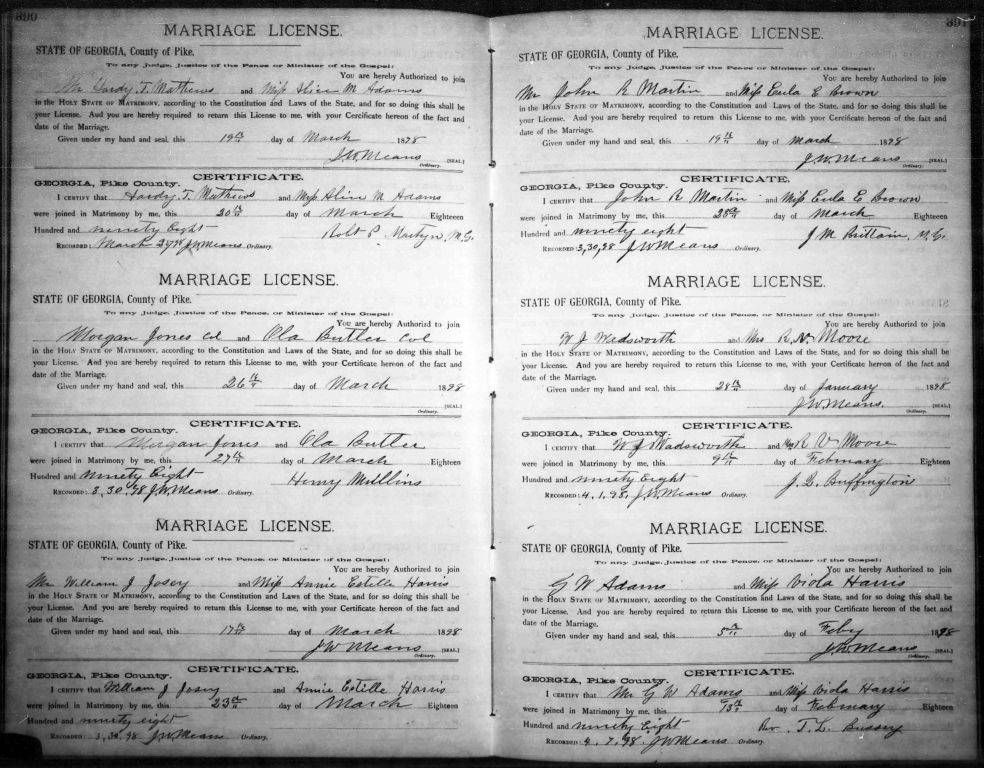 390
MARRIAGE LICENSE.
STATE OF GEORGIA, County of Pike.
To any Judge, Justice of the Peace, or Minister of the Gospel:
You are hereby Authorized to join
Mr Hardy T. Mathews and Miss Alice M Adams
in the HOLY STATE OF MATRIMONY, according to the Constitution and Laws of the State, and for so doing this shall be
your License. And you are hereby required to return this License to me, with your Certificate hereon of the fact and
date of the Marriage.
Given under my hand and seal, this 19th day of March 1898
J.W. Means [SEAL]
Ordinary.
CERTIFICATE.
GEORGIA, Pike County.
I CERTIFY that Hardy T. Mathews and Miss Alice M Adams
were joined in Matrimony by me, this 20th day of March Eighteen
Hundred and ninety eight Robt P. Martyn, M.G.
RECORDED: March J.W. Means Ordinary.
MARRIAGE LICENSE.
STATE OF GEORGIA, County of Pike.
To any Judge, Justice of the Peace, or Minister of the Gospel:
You are hereby Authorized to join
Morgan Jones col and Ola Butler col
in the HOLY STATE OF MATRIMONY, according to the Constitution and Laws of the State, and for so doing this shall be
your License. And you are hereby required to return this License to me, with your Certificate hereon of the fact and
date of the Marriage.
Given under my hand and seal, this 26th day of March 1898
[SEAL]
Ordinary.
CERTIFICATE.
GEORGIA, Pike County.
I CERTIFY that Morgan Jones and Ola Butler
were joined in Matrimony by me, this 27th day of March Eighteen
Hundred and ninety Eight Henry Mullins
RECORDED: 3.30.98 J.W. Means Ordinary.
MARRIAGE LICENSE.
STATE OF GEORGIA, County of Pike.
To any Judge, Justice of the Peace, or Minister of the Gospel:
You are hereby Authorized to join
Mr William J Josey and Miss Annie Estelle Harris
in the HOLY STATE OF MATRIMONY, according to the Constitution and Laws of the State, and for so doing this shall be
your License. And you are hereby required to return this License to me, with your Certificate hereon of the fact and
date of the Marriage.
Given under my hand and seal, this 17th day of March 1898
J W Means [SEAL]
Ordinary.
CERTIFICATE.
GEORGIA, Pike County.
I CERTIFY that William J Josey and Annie Estelle Harris
were joined in Matrimony by me, this 23d day of March Eighteen
Hundred and ninety eight
RECORDED: 3,30,98 J.W. Means Ordinary.
391
MARRIAGE LICENSE.
STATE OF GEORGIA, County of Pike.
To any Judge, Justice of the Peace or Minister of the Gospel:
You are hereby Authorized to join
Mr John R Martin and Miss Eula E Brown
in the HOLY STATE OF MATRIMONY, according to the Constitution and Laws of the State, and for so doing this shall be
your License. And you are hereby required to return this License to me, with your Certificate hereon of the fact and
date of the Marriage.
Given under my hand and seal, this 19th day of March 1898
J.W. Means [SEAL]
Ordinary.
CERTIFICATE.
GEORGIA, Pike County.
I CERTIFY that John R Martin and Miss Eula E Brown
were joined in Matrimony by me, this 28th day of March Eighteen
Hundred and ninety eight J M Brittain, M.G.
RECORDED: 3,30,98 J.W. Means Ordinary.
MARRIAGE LICENSE.
STATE OF GEORGIA, County of Pike.
To any Judge, Justice of the Peace, or Minister of the Gospel:
You are hereby Authorized to join
W J Wadsworth and Mrs R.V. Moore
in the HOLY STATE OF MATRIMONY, according to the Constitution and Laws of the State, and for so doing this shall be
your License. And you are hereby required to return this License to me, with your Certificate hereon of the fact and
date of the Marriage.
Given under my hand and seal, this 28th day of January 1898
J.W. Means. [SEAL]
Ordinary.
CERTIFICATE.
GEORGIA, Pike County.
I CERTIFY that W J Wadsworth and Mrs R V Moore
were joined in Matrimony by me, this 9th day of February Eighteen
Hundred and ninety Eight J. L. Buffington
RECORDED: 4.1.98. J.W. Means Ordinary.
MARRIAGE LICENSE.
STATE OF GEORGIA, County of Pike.
To any Judge, Justice of the Peace, or Minister of the Gospel:
You are hereby Authorized to join
G W Adams and Miss Viola Harris
in the HOLY STATE OF MATRIMONY, according to the Constitution and Laws of the State, and for so doing this shall be
your License. And you are hereby required to return this License to me, with your Certificate hereon of the fact and
date of the Marriage.
Given under my hand and seal, this 5th day of Feby 1898
J.W. Means [SEAL]
Ordinary.
CERTIFICATE.
GEORGIA, Pike County.
I CERTIFY that Mr G W Adams and Miss Viola Harris
were joined in Matrimony by me, this 13th day of February Eighteen
Hundred and ninety Eight Rev T. L. Bussey
RECORDED: 4.7.98. J W Means Ordinary.